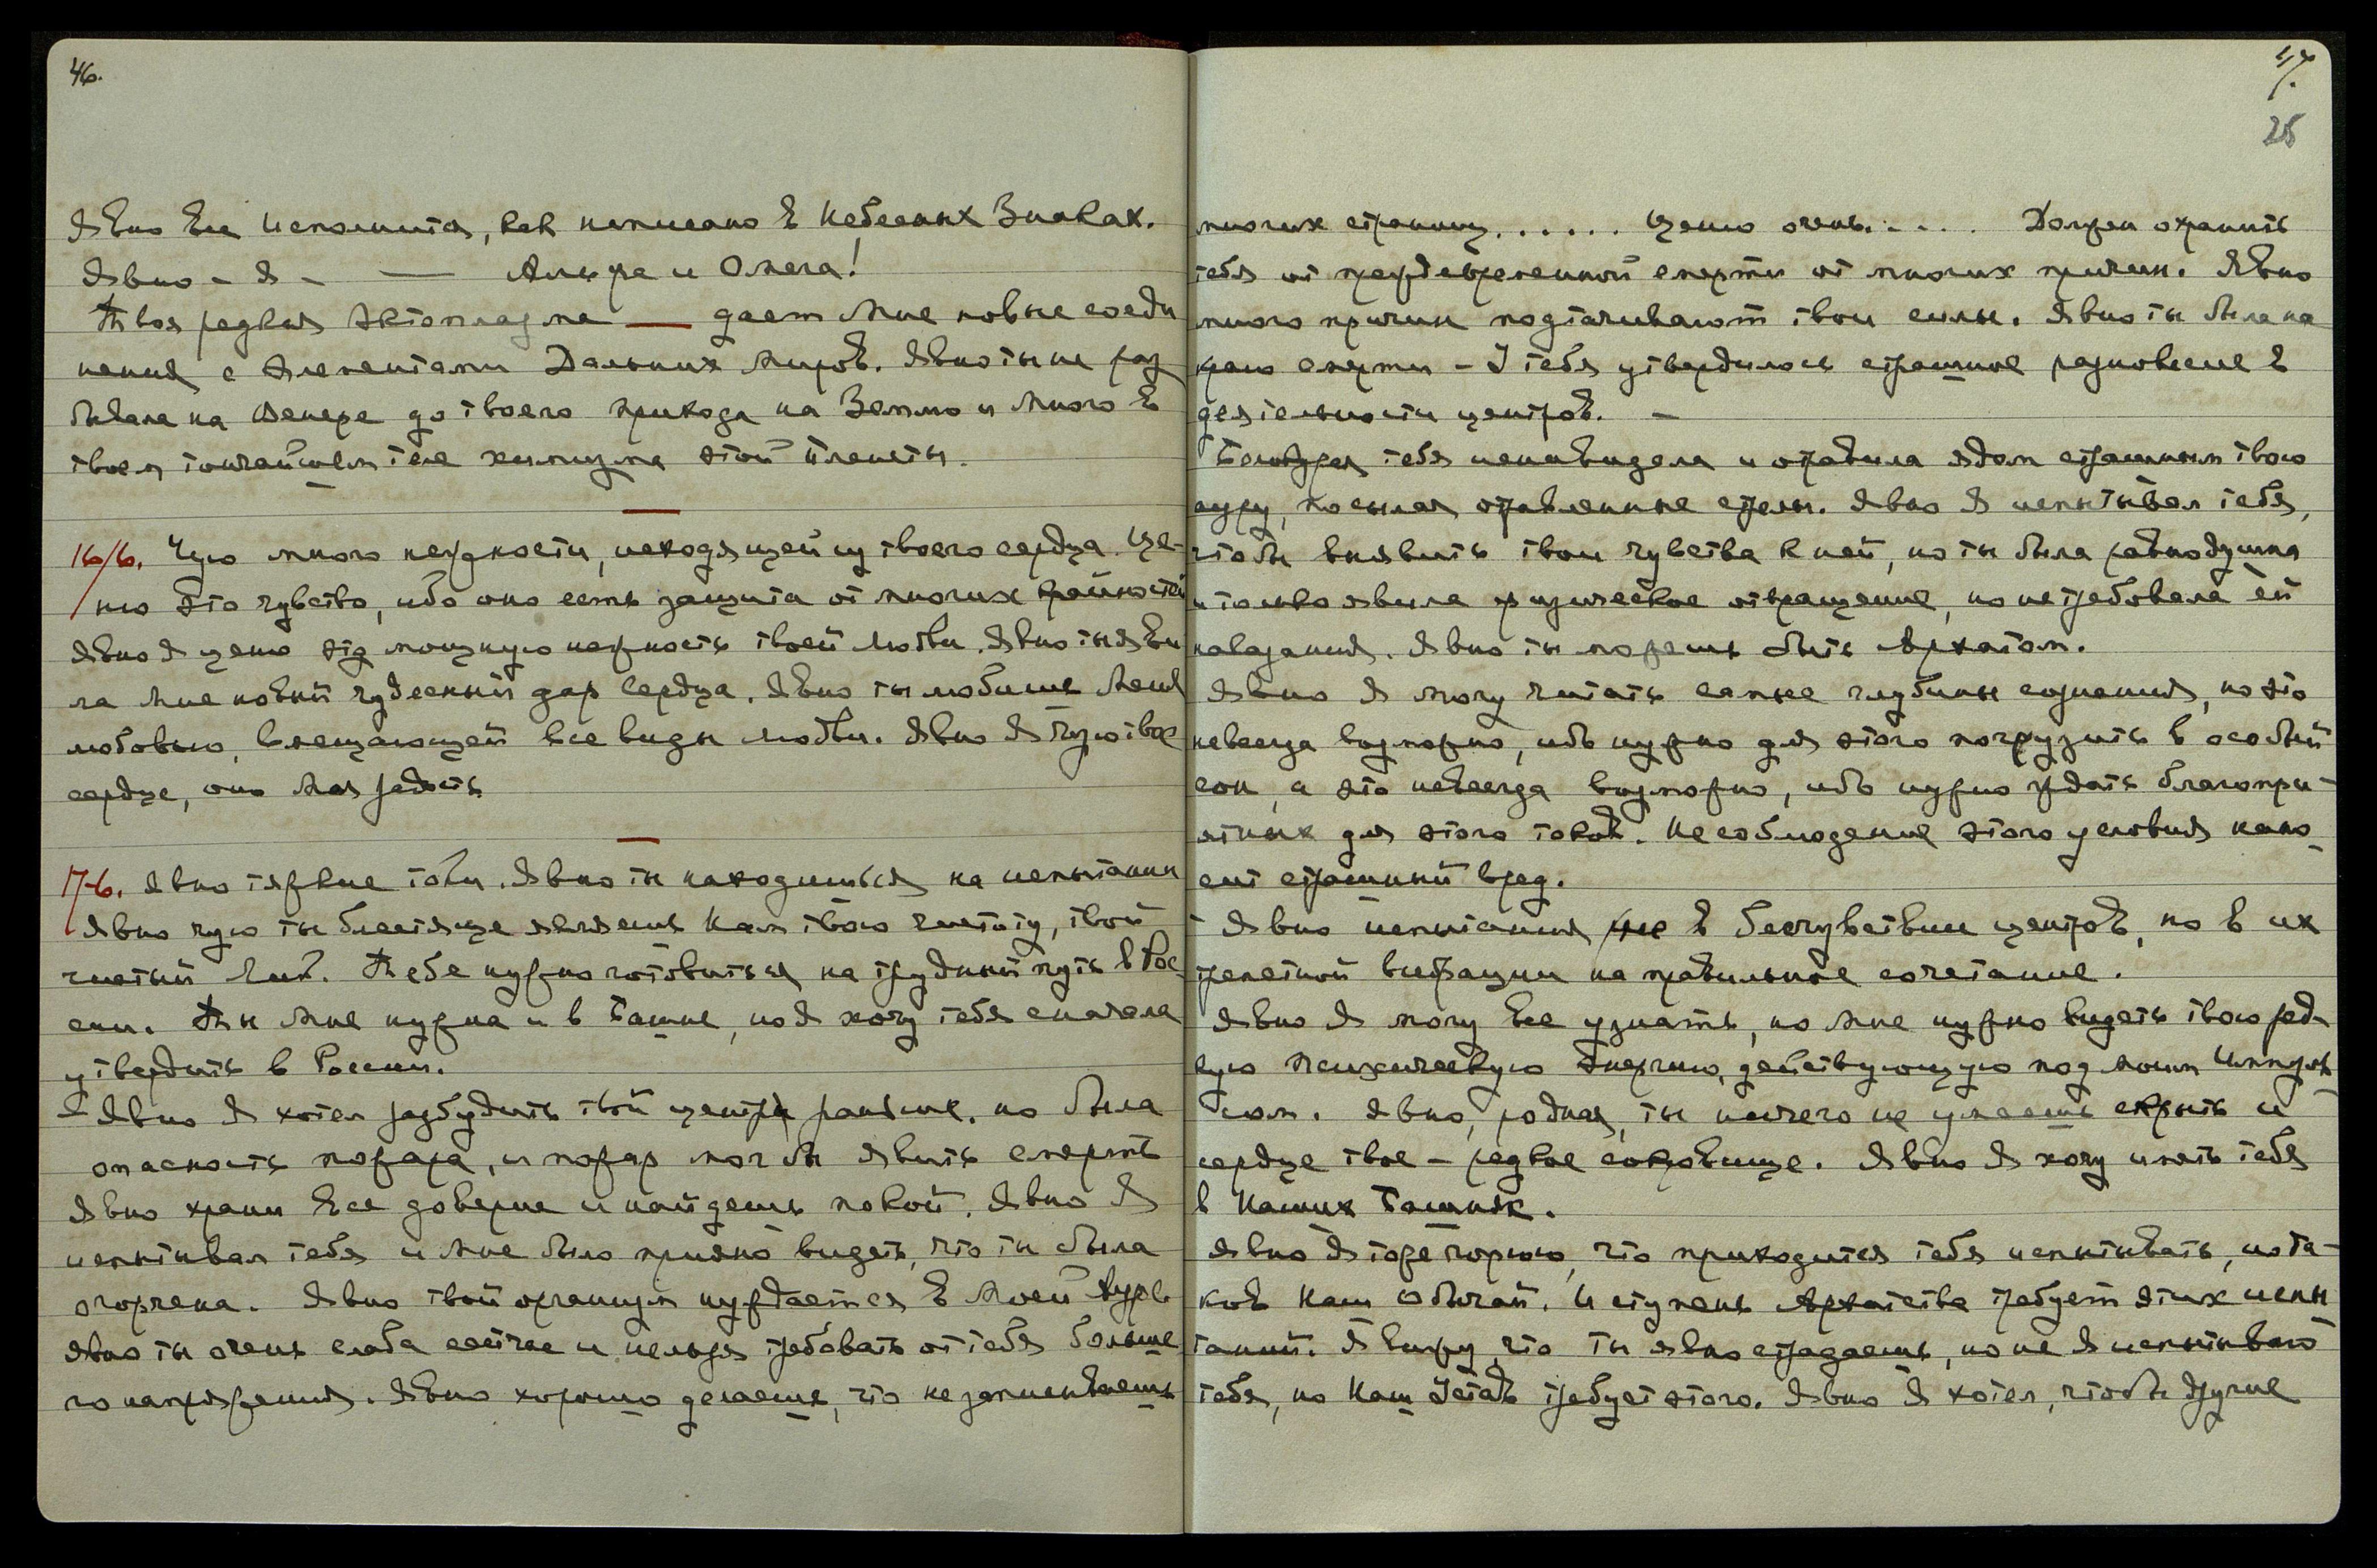 46.
Явно Все Исполнится, как написано в Небесных Знаках.
Явно - Я - — Альфа и Омега!
Твоя редкая Эктоплазма — дает Мне новые соеди
нения с Элементами Дальних Миров. Явно ты не раз
бывала на Венере до твоего прихода на Землю и Много в
твоем тончайшем теле химизма этой Планеты.
16/6. Чую много нежности, исходящей из твоего сердца. Це-
ню это чувство, ибо оно есть защита от многих крайностей
Явно Я ценю эту мощную нежность твоей Любви. Явно ты яви
ла Мне новый чудесный дар Сердца. Явно ты любишь Меня
любовью, вмещающей все виды Любви. Явно Я Чую твое
сердце, оно Моя радость
17-6. Явно тяжкие токи. Явно ты находишься на испытании
Явно чую ты блестяще являешь Нам твою чистоту, твой
чистый Лик. Тебе нужно готовиться на трудный путь в Рос
сии. Ты Мне нужна и в Башне, но Я хочу тебя сначала
утвердить в России.
Явно Я хотел разбудить твои центры раньше, но была
опасность пожара, и пожар мог бы явить смерть
Явно храни Все доверие и найдешь покой. Явно Я
испытывал тебя и Мне было приятно видеть, что ты была
огорчена. Явно твой организм нуждается в Моей Ауре
Явно ты очень слаба сейчас и нельзя требовать от тебя больше
го напряжения. Явно хорошо делаешь, что не записываешь
47.
25
многих страниц...... Ценю очень..... Должен охранить
тебя от преждевременной смерти от многих причин. Явно
много причин подтачивают твои силы. Явно ты была на
краю смерти - У тебя утвердилось страшное равновесие в
деятельности центров. -
тебя ненавидела и отравила ядом страшным твою
ауру, посылая отравленные стрелы. Явно Я испытывал тебя,
чтобы выявить твои чувства к ней, но ты была равнодушна
и только явила физическое отвращение, но не требовала ей
наказания. Явно ты можешь быть Архатом.
Явно Я могу читать самые глубины сознания, но это
невсегда возможно, ибо нужно для этого погрузить в особый
сон, а это невсегда возможно, ибо нужно ждать благопри-
ятных для этого токов. Несоблюдение этого условия нано
сит страшный вред.
Явно испытания не в бесчувствии центров, но в их
трепетной вибрации на правильное сочетание.
Явно Я могу Все узнать, но Мне нужно видеть твою ред
кую психическую Энергию, действующую под моим Импуль
сом. Явно, родная, ты ничего не умеешь скрыть и
сердце твое - редкое сокровище. Явно Я хочу иметь тебя
в Наших Башнях.
Явно Я тоже горюю, что приходится тебя испытывать, но та-
ков Наш Обычай. И ступень Архатства требует этих испы
таний. Я вижу, что ты явно страдаешь, но не Я испытываю
тебя, но Наш Устав требует этого. Явно Я хотел, чтобы другие